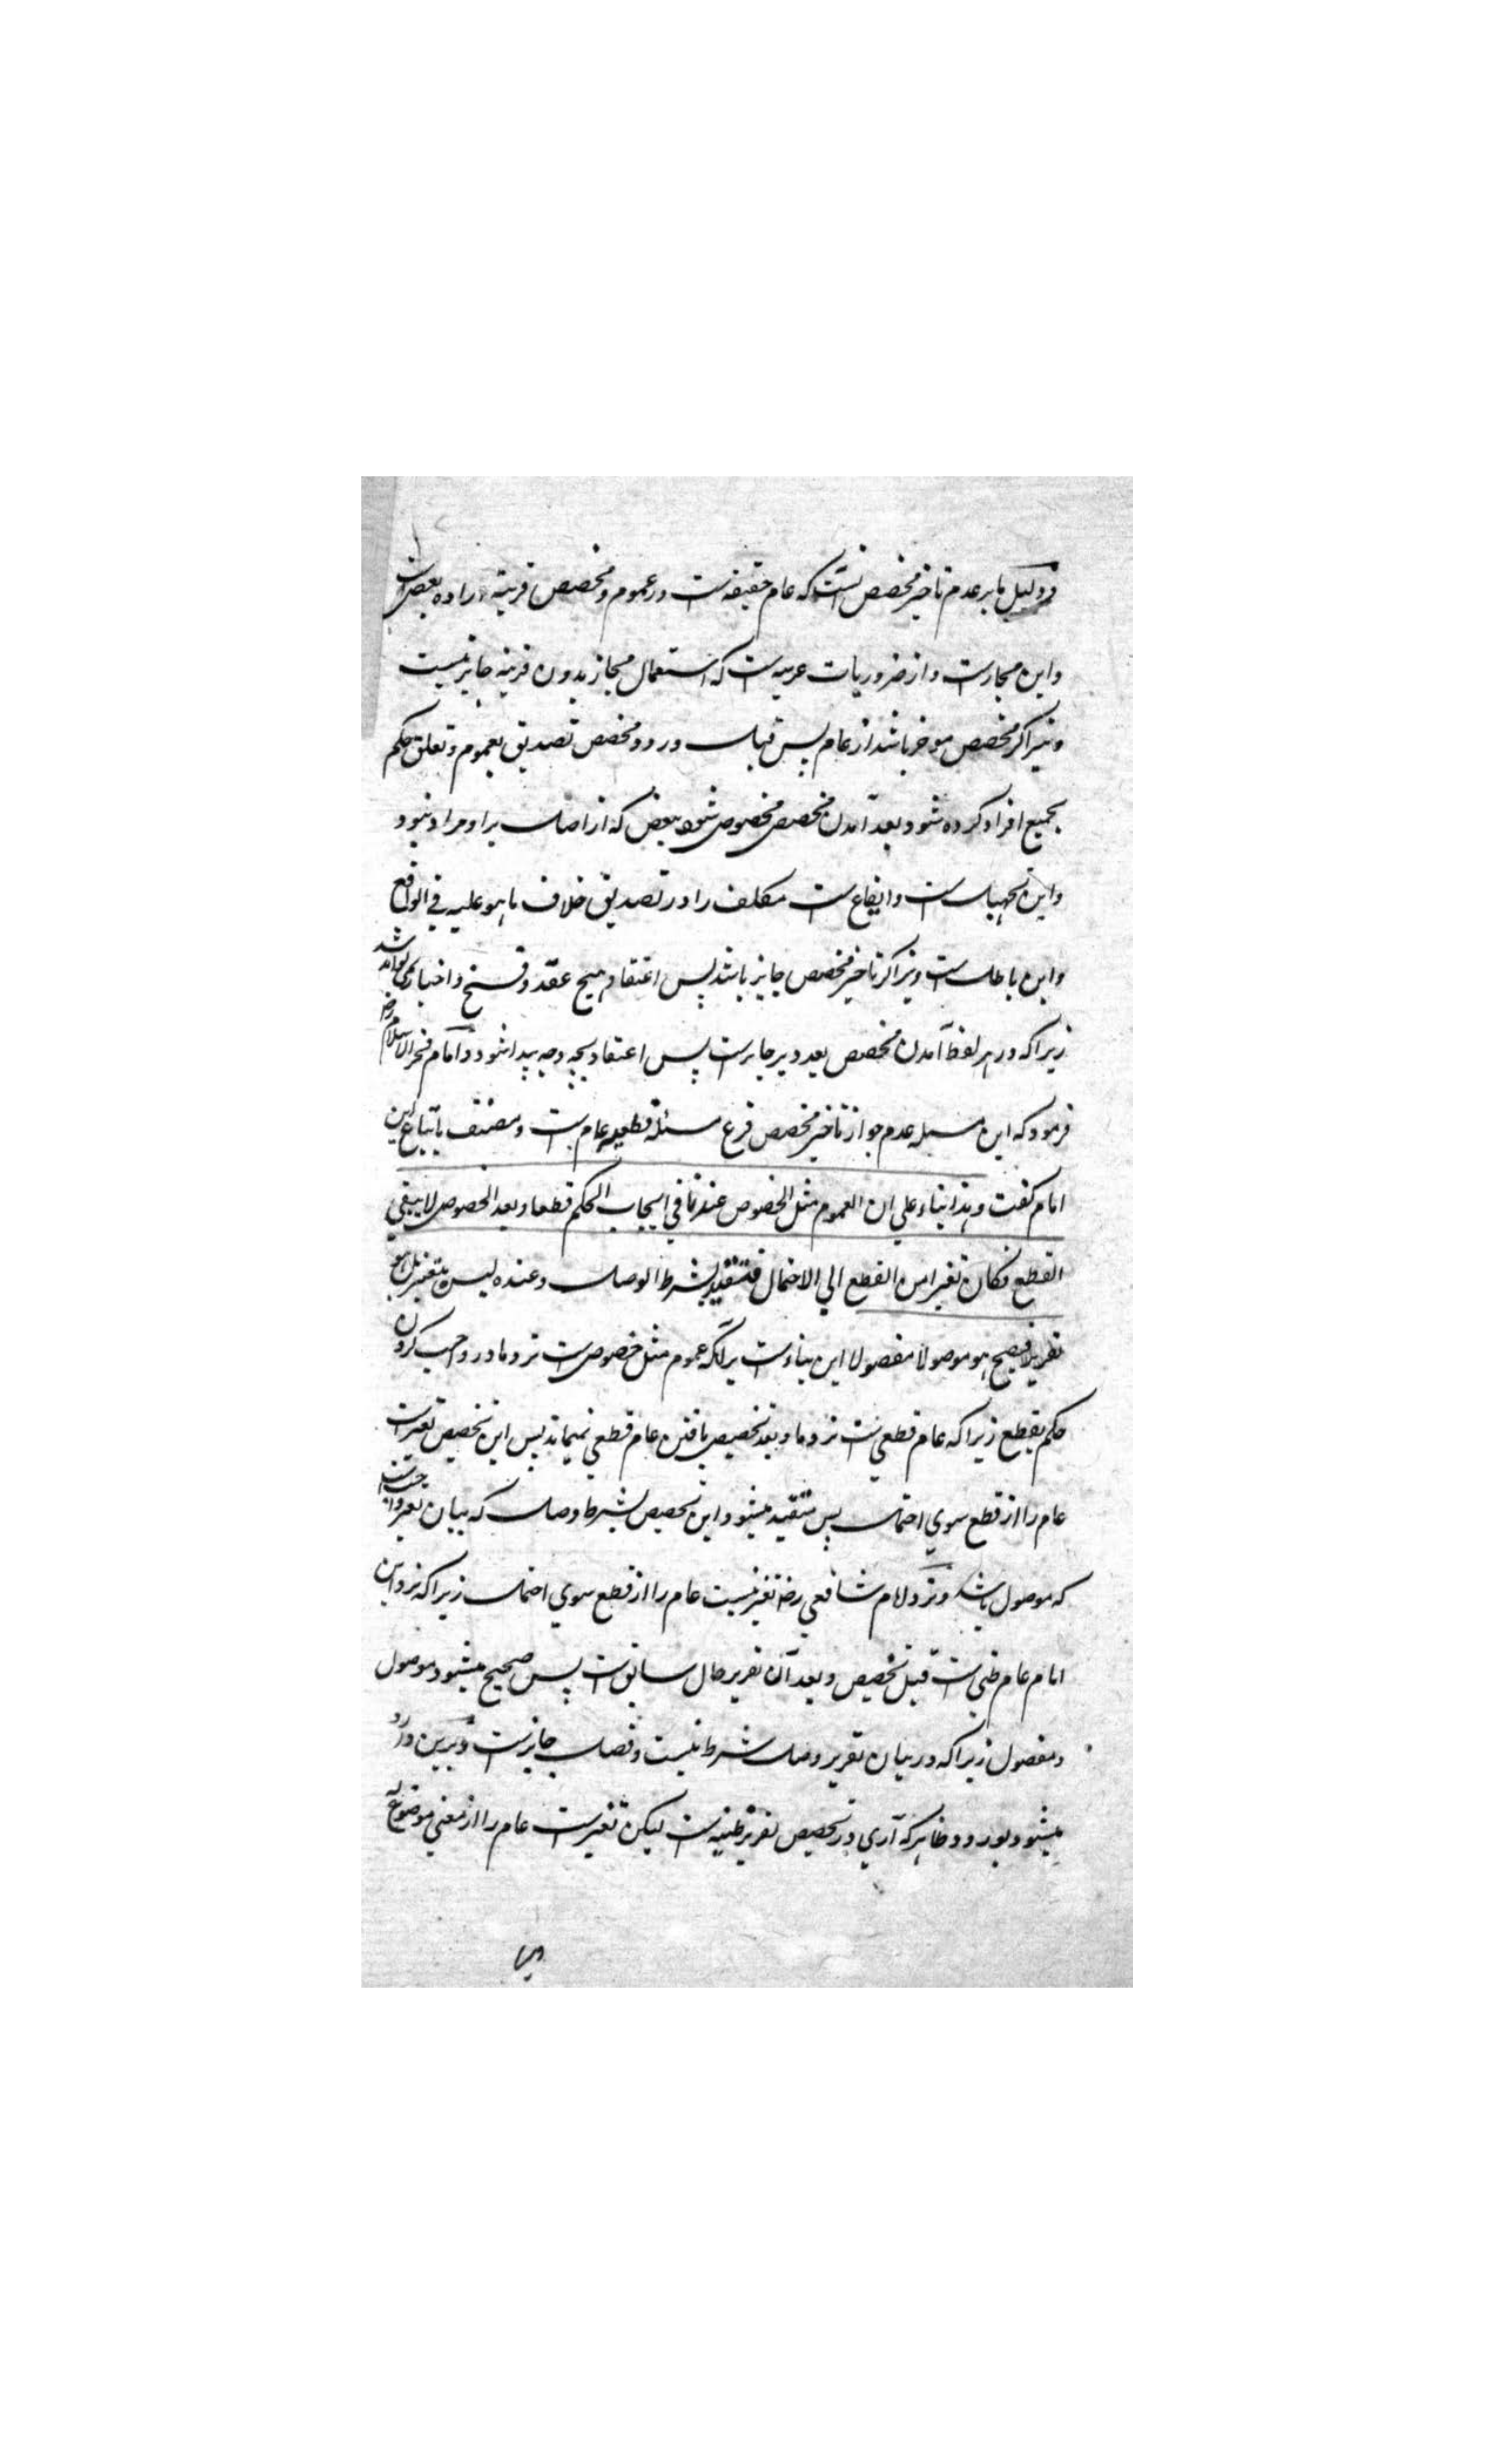 ودلیل ما بر عدم تاخیر مخصص آنست که عام حقیقه است در عموم و مخصص قرینه اراده بعض است
واین مجازست واز ضروریات عربیه است که استعمال مجاز بدون قرینه جایز نیست
ونیز اکر مخصص موخر باشد از عام پس قبل ورود مخصص تصدیق بعموم وتعلق حکم
بجمیع افراد کرده شود بعد آمدن مخصص مخصوص شود ببعض که از اصل براو مراد نبود
واین تجهیل است وایقاع است مکلف را در تصدیق خلاف ما هو علیه فی الواقع
واین باطل است ونیز اکر تاخیر مخصص جایز باشد پس اعتقاد هیچ عقد وفسخ واخبار نمی تواند شد
زیرا که در هر لفظ آمدن مخصص بعد دیر جایزست پس اعتقاد بچه وجه پیدا شود وامام فخر الاسلام رضه
فرمود که این مسئله عدم جواز تاخیر مخصص فرع مسئله قطعیه عام است ومصنف باتباع این
امام کفت وهذا بناء علی ان العموم مثل الخصوص عندنا فی ایجاب الحکم قطعا وبعد الخصوص لا یبقی
القطع فکان تغیرا من القطع الی الاحتمال فتقید بشرط الوصل وعنده لیس بتغییر بل هو
تقریر فیصح موصولا مفصولا این بناءست برآنکه عموم مثل خصوص است نزد ما در واجب کردن
حکم بقطع زیرا که عام قطعی است نزد ما وبعد تخصیص یافتن عام قطعی نمیماند پس این تخصیص تغیرست
عام را از قطع سوی احتمال پس متقید میشود این تخصیص بشرط وصل که بیان تغیر واجب است
که موصول باشد ونزد امام شافعی رضه تغیر نیست عام را از قطع سوی احتمال زیرا که نزد این
امام عام ظنی است قبل تخصیص وبعد آن تقریر حال سابق است پس صحیح میشود موصول
ومفصول زیرا که در بیان تقریر وصل شرط نیست وفصل جایزست وبرین وارد
میشود بورود ظاهر که آری در تخصیص تقریر ظنیه است لیکن تغیرست عام را از معنی موضوع له